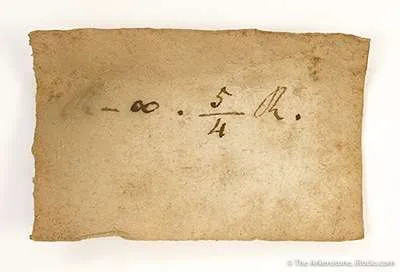 R - ∞ . 5/4 R.
© The Arkenstone, iRocks.com